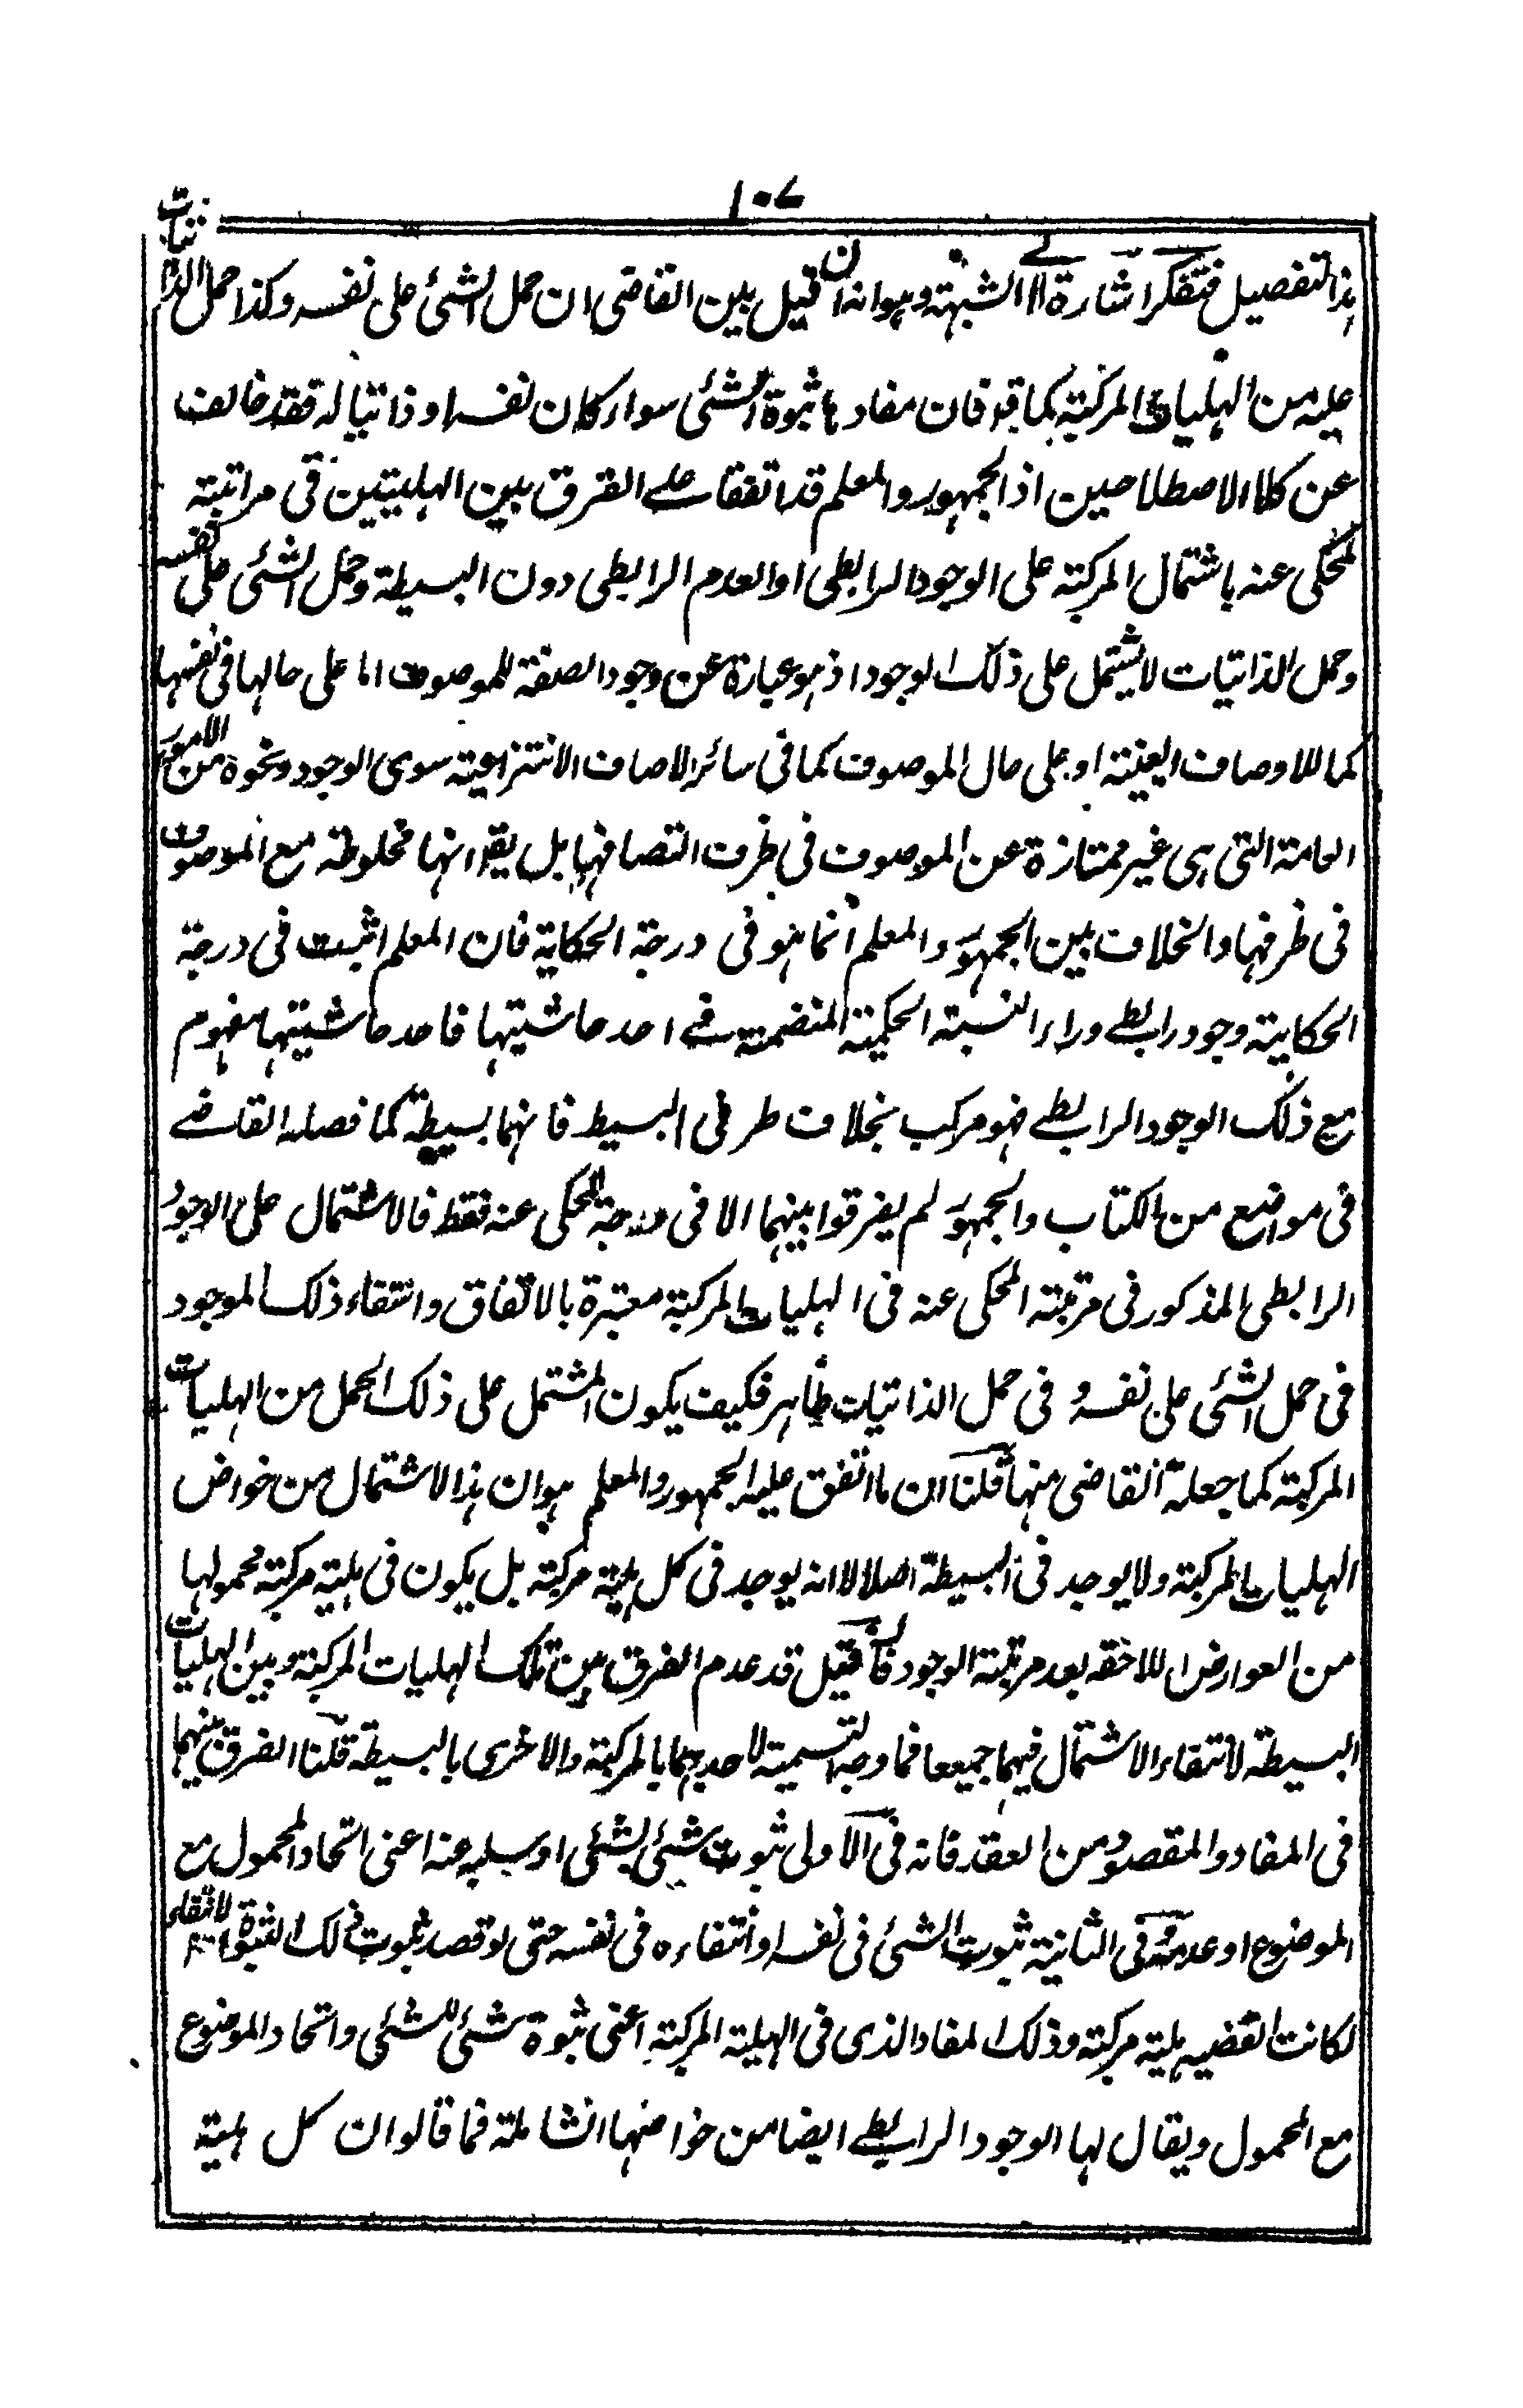 ١٠٧
هذا التفصيل فتفكر اشارة الى الشبهة وهو انه ان قيل بين القاضي ان حمل الشئ على نفسه وكذا حمل الذاتيات
عليه من الهليات المركبة كما قد فان مفادها ثبوة الشئ سواء كان نفسه او ذاتيا له فقد خالف
عن كلا الاصطلاحين اذ الجمهور والمعلم قد اتفقا على الفرق بين الهليتين في مرتبة
المحكى عنه باشتمال المركبة على الوجود الرابطى او العدم الرابطى دون البسيطة وحمل الشئ على نفسه
وحمل الذاتيات لا يشتمل على ذلك الوجود اذ هو عبارة عن وجود الصفة للموصوف اما على حالها في نفسها
كما للاوصاف العينية او على حال الموصوف كما في سائر الاصاف الانتزاعية سوى الوجود ونحوه من الامور
العامة التى هى غير ممتازة عن الموصوف في ظرف اتصافها بل يقو انها مخلوطة مع الموصوف
في ظرفها والخلاف بين الجمهور والمعلم انما هو في درجة الحكاية فان المعلم اثبت في درجة
الحكاية وجود رابطى وراء النسبة الحكمية المنضمة في احد حاشيتها فاحد حاشيتها مفهوم
مع ذلك الوجود الرابطى فهو مركب بخلاف طرفى البسيط فانهما بسيطة كما فصله القاضى
في مواضع من الكتاب والجمهور لم يفرقوا بينهما الا في درجة المحكى عنه فقط فالاشتمال على الوجود
الرابطى المذكور في مرتبة المحكى عنه في الهليات المركبة معتبرة بالاتفاق وانتفاء ذلك الموجود
في حمل الشئ على نفسه و في حمل الذاتيات ظاهر فكيف يكون المشتمل على ذلك الحمل من الهليات
المركبة كما جعله القاضى منها قلنا ان ما اتفق عليه الجمهور والمعلم هو ان هذا الاشتمال من خواص
الهليات المركبة ولا يوجد في البسيطة اصلا لا انه يوجد في كل هلية مركبة بل يكون في هلية مركبة محمولها
من العوارض اللاحقة بعد مرتبة الوجود فان قيل قد عدم الفرق بين تلك الهليات المركبة وبين الهليات
البسيطة لانتفاء الاشتمال فيهما جميعا فما وجه التسمية لاحدهما بالمركبة والاخرى بالبسيطة قلنا الفرق بينهما
في المفاد والمقصود من العقد فانه في الاولى ثبوت شئ لشئ او سلبه عنه اعنى اتحاد المحمول مع
الموضوع او عدمه وفي الثانية ثبوت الشئ في نفسه او انتفاءه في نفسه حتى لو قصد ثبوت ذلك الثبوة لانتفاء
لكانت القضيه هلية مركبة وذلك المفاد الذى في الهلية المركبة اعنى ثبوة شئ للشئ واتحاد الموضوع
مع المحمول ويقال لها الوجود الرابطى ايضا من خواصها الشاملة فما قالوا ان كل هلية